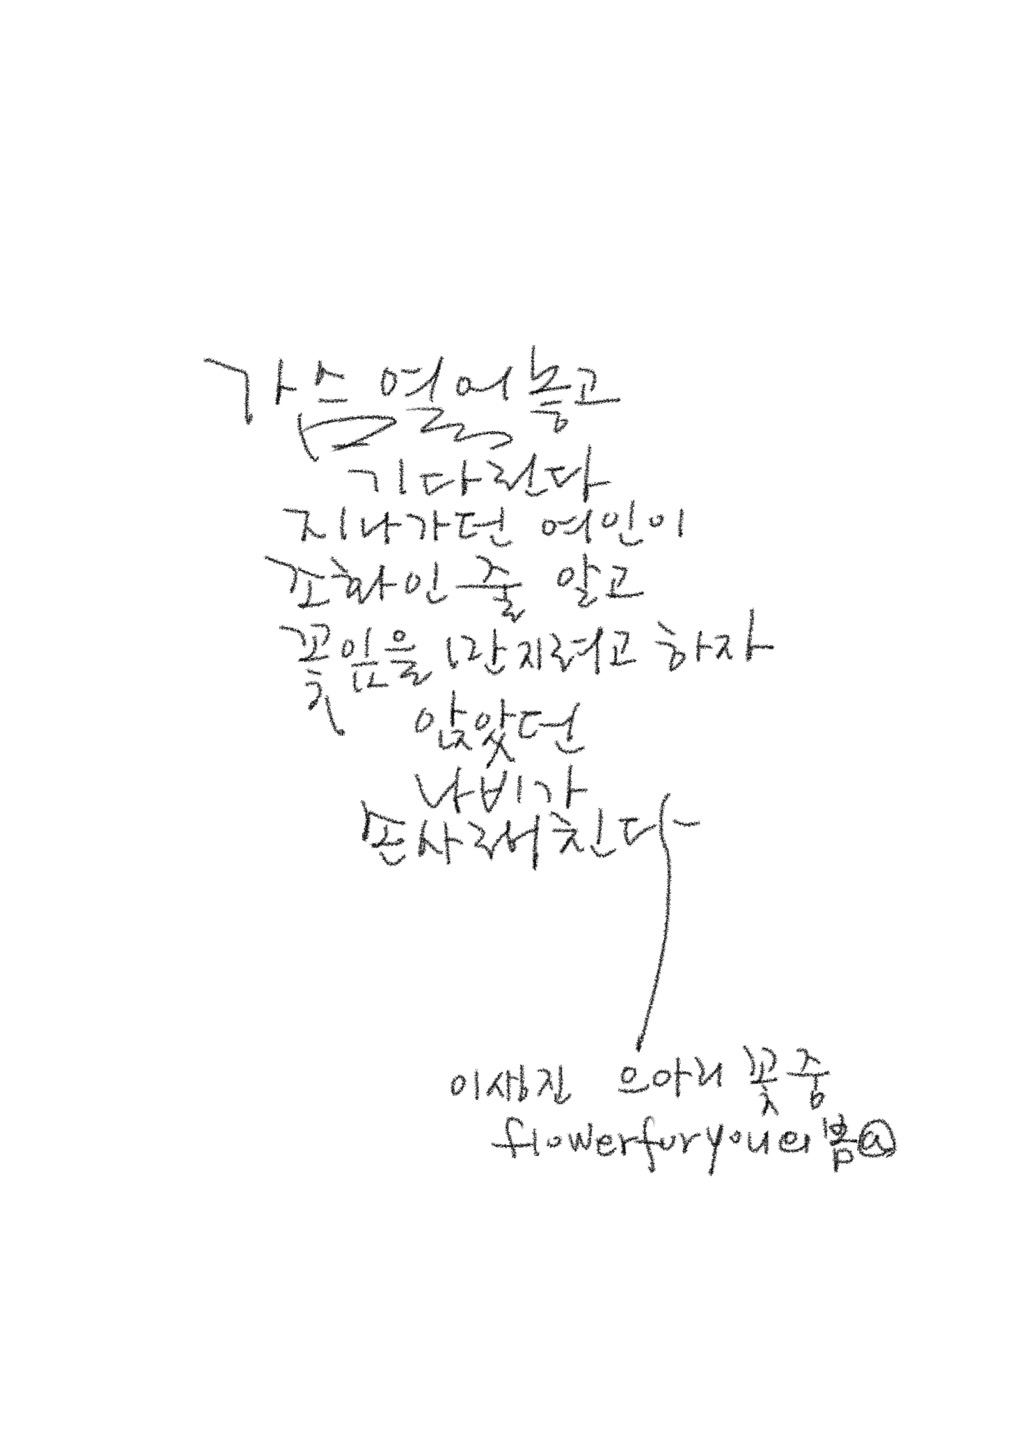 가슴 열어 놓고
기다린다
지나가던 여인이
조화인 줄 알고
꽃잎을 만지려고 하자
앉았던
나비가
손사래 친다
이생진 으아리 꽃 중
flowerfuryou의 봄ⓐ